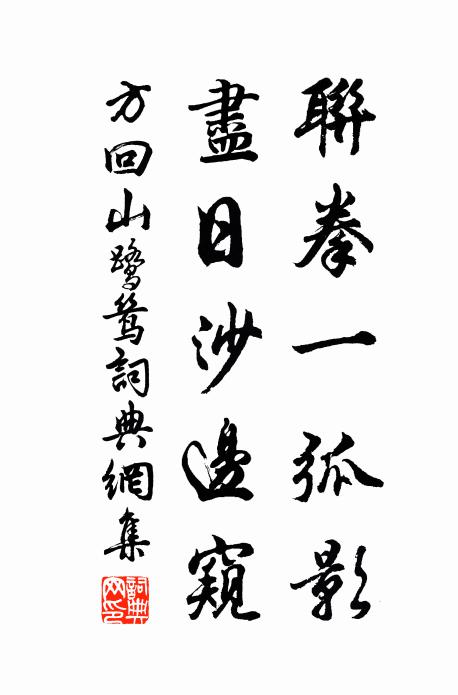 聯拳一孤影
盡日沙邊窺
方回山鷺鷥詞典網集
詞典网印